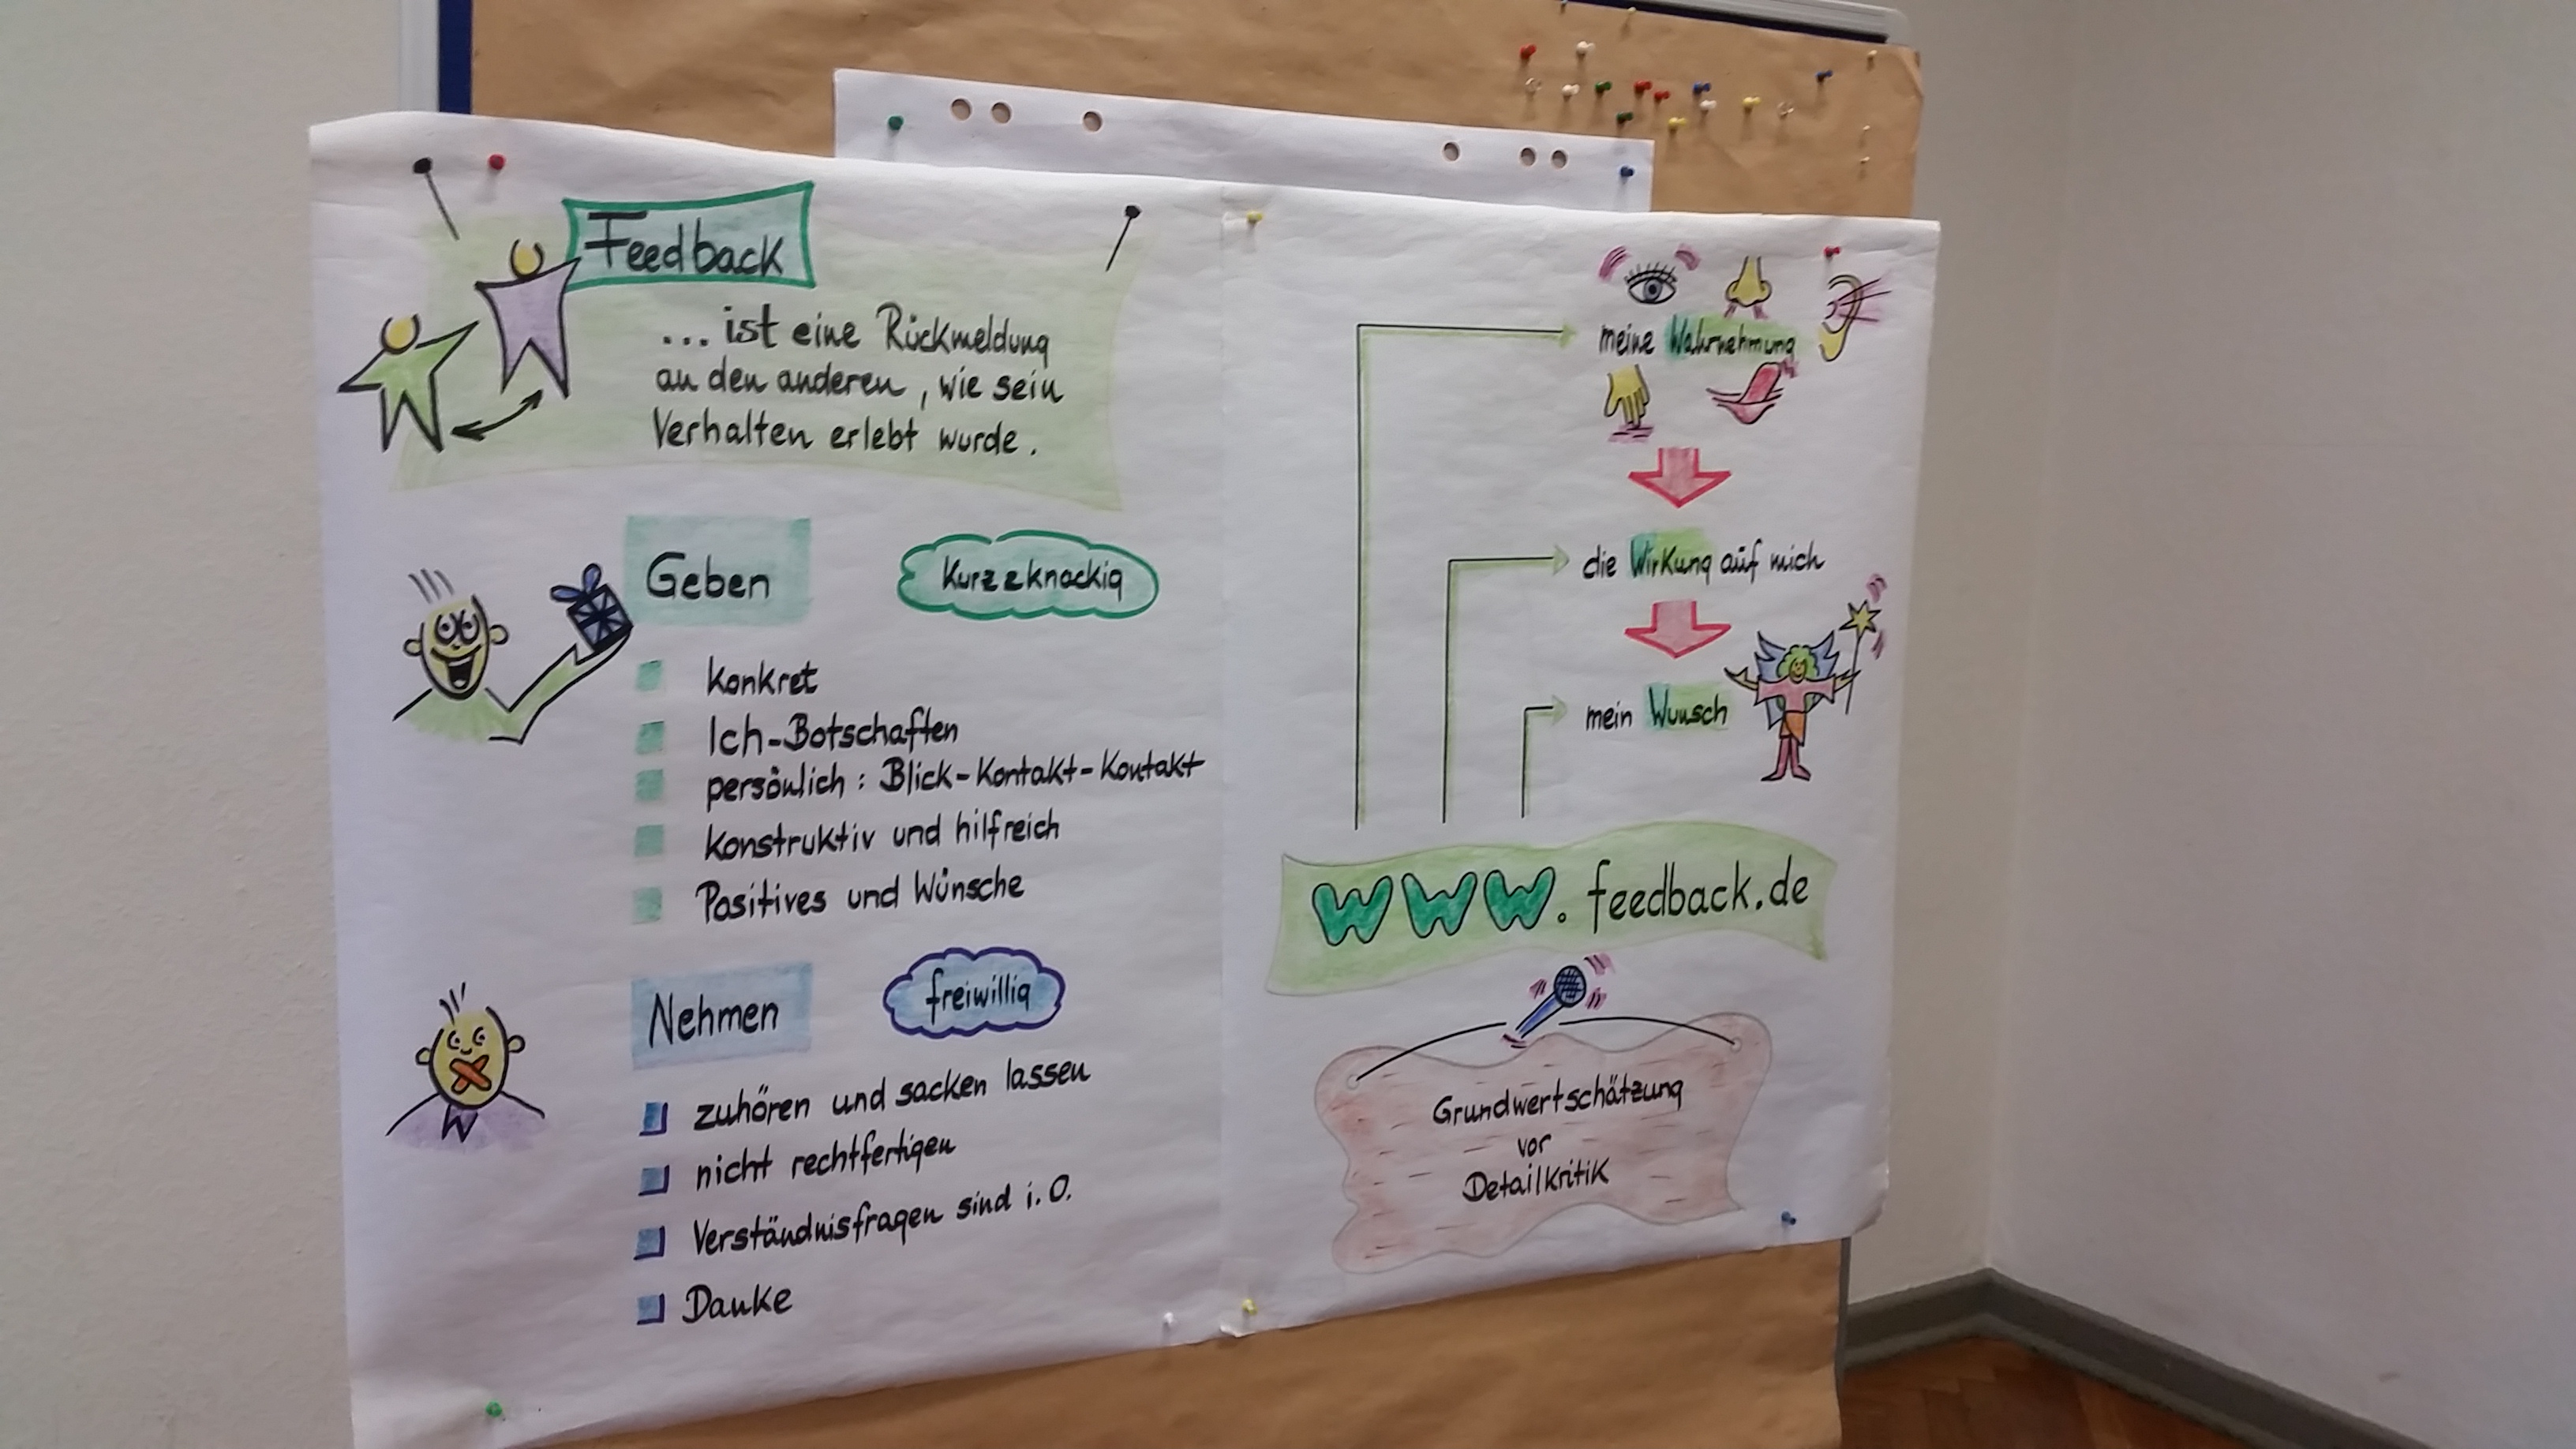 Feedback
... ist eine Rückmeldung
an den anderen, wie sein
Verhalten erlebt wurde.
Geben
Kurz & knackig
konkret
Ich-Botschaften
persönlich: Blick-Kontakt-Kontakt
konstruktiv und hilfreich
Positives und Wünsche
Nehmen
freiwillig
zuhören und sacken lassen
nicht rechtfertigen
Verständnisfragen sind i.O.
Danke
meine Wahrnehmung
die Wirkung auf mich
mein Wunsch
www.feedback.de
Grundwertschätzung
vor
Detailkritik